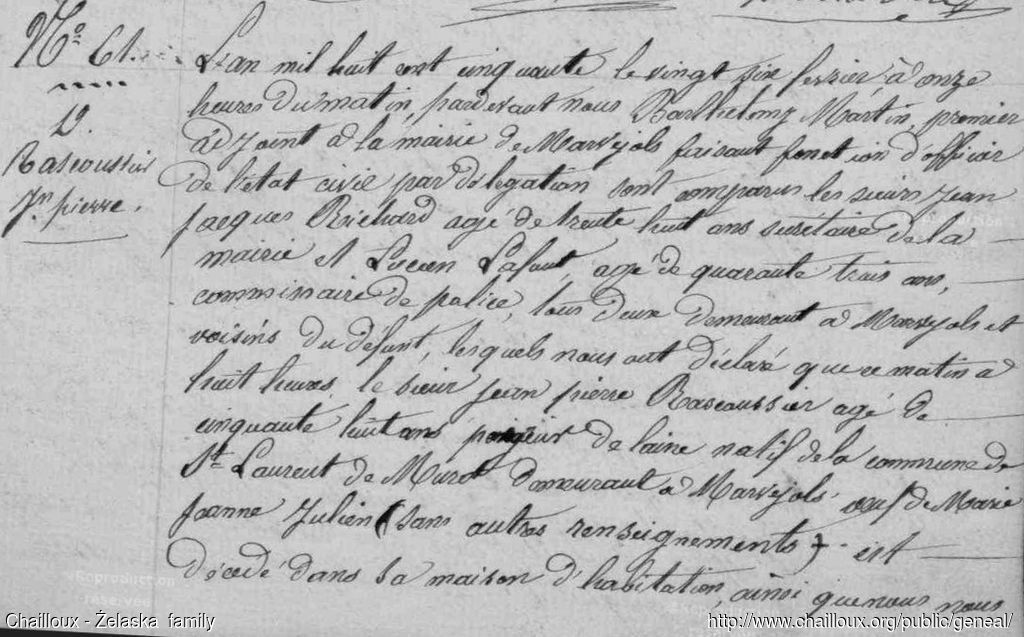 No 61.
D.
Rascoussier
Jn pierre.
L'an mil huit cent cinquante le vingt six fevrier, à onze
heures du matin, pardevant nous Barthelemy Martin, premier
adjoint à la mairie de Marvejols faisant fonction d'officier
de l'état civil par délégation sont comparus les sieurs Jean
jacques Richard agé de trente huit ans secrétaire de la
mairie et Lucien Lafont, agé de quarante trois ans,
commissaire de police, tous deux demeurant à Marvejols et
voisins du défunt, lesquels nous ont déclaré que ce matin à
huit heures, le sieur jean pierre Rascoussier agé de
cinquante huit ans peigneur de laine natif de la commune de
St Laurent de Muret demeurant à Marvejols veuf de Marie
Jeanne Julien (sans autres renseignements) est
décédé dans sa maison d'habitation, ainsi que nous nous
Chailloux - Żelaska family
http://www.chailloux.org/public/geneal/